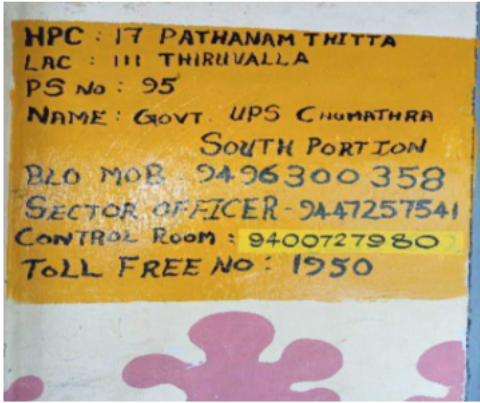 HPC : 17 PATHANAMTHITTA
LAC : 111 THIRUVALLA
PS No : 95
NAME : GOVT. UPS CHUMATHRA
SOUTH PORTION
BLO MOB 9496300358
SECTOR OFFICER - 9447257541
CONTROL ROOM : 9400727980
TOLL FREE NO : 1950